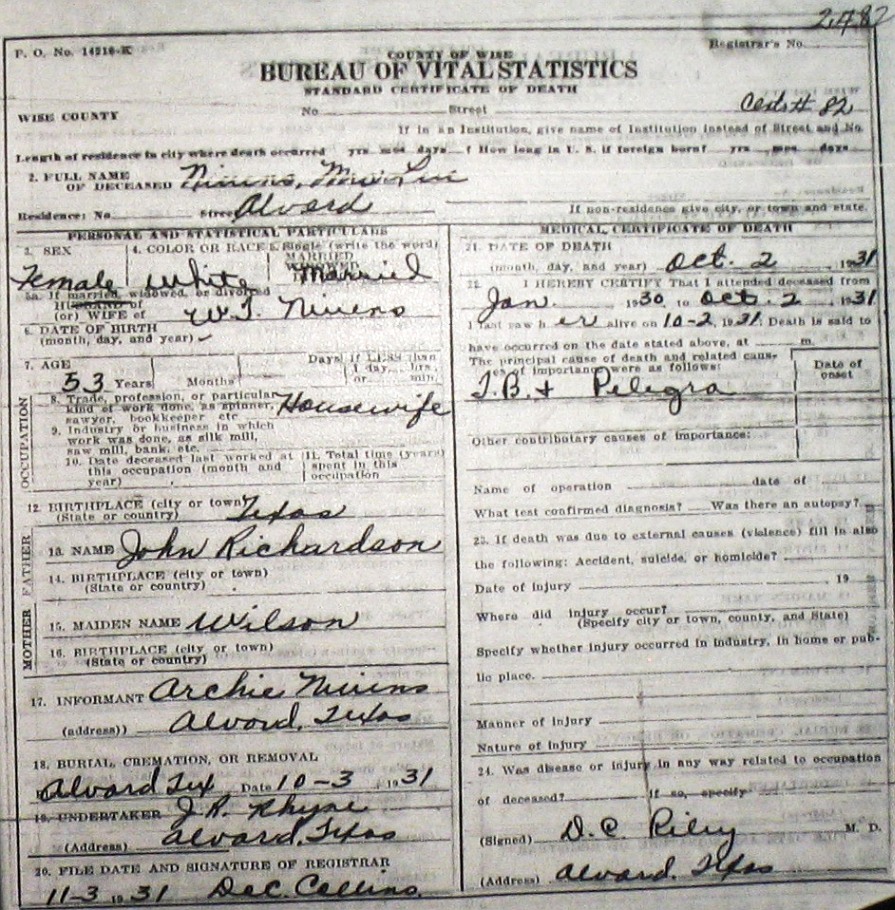 2482
P. O. No. 14216-K
Registrar's No.
COUNTY OF WISE
BUREAU OF VITAL STATISTICS
STANDARD CERTIFICATE OF DEATH
WISE COUNTY No. Street Cert # 82
If in an Institution, give name of Institution instead of Street and No.
Length of residence in city where death occurred yrs mos days ? How long in U. S. if foreign born? yrs mos days
2. FULL NAME
OF DECEASED Nivens, Mrs.
Residence: No. Street Alvord If non-residence give city, or town and state.
PERSONAL AND STATISTICAL PARTICULARS
3. SEX 4. COLOR OR RACE 5. Single (write the word)
MARRIED
WIDOWED
Female White Married
5a. If married, widowed, or divorced
HUSBAND of
(or) WIFE of W.T. Nivens
6. DATE OF BIRTH
(month, day, and year)
7. AGE Days If LESS than
1 day, hrs.
53 Years Months or min.
OCCUPATION
8. Trade, profession, or particular
kind of work done, as spinner, Housewife
sawyer, bookkeeper etc.
9. Industry or business in which
work was done, as silk mill,
saw mill, bank, etc.
10. Date deceased last worked at
this occupation (month and
year)
11. Total time (years)
spent in this
occupation
12. BIRTHPLACE (city or town)
(State or country) Texas
FATHER
13. NAME John Richardson
14. BIRTHPLACE (city or town)
(State or country)
MOTHER
15. MAIDEN NAME Wilson
16. BIRTHPLACE (city or town)
(State or country)
17. INFORMANT Archie Nivens
(address)) Alvord, Texas
18. BURIAL, CREMATION, OR REMOVAL
Alvord Tex Date 10-3 1931
19. UNDERTAKER J.R. Rhyne
(Address) Alvord, Texas
20. FILE DATE AND SIGNATURE OF REGISTRAR
11-3 1931 Dec. Collins
MEDICAL CERTIFICATE OF DEATH
21. DATE OF DEATH
(month, day, and year) Oct. 2 1931
22. I HEREBY CERTIFY That I attended deceased from
Jan. 1930, to Oct. 2, 1931
I last saw h er alive on 10-2, 1931. Death is said to
have occurred on the date stated above, at m.
The principal cause of death and related cau-
ses of importance were as follows:
Date of
onset
T.B. + Pelegra
Other contributory causes of importance:
Name of operation date of
What test confirmed diagnosis? Was there an autopsy?
23. If death was due to external causes (violence) fill in also
the following: Accident, suicide, or homicide?
Date of injury 19
Where did injury occur?
(Specify city or town, county, and State)
Specify whether injury occurred in industry, in home or pub-
lic place.
Manner of injury
Nature of injury
24. Was disease or injury in any way related to occupation
of deceased? If so, specify
(Signed) D.C. Riley M. D.
(Address) Alvord, Texas